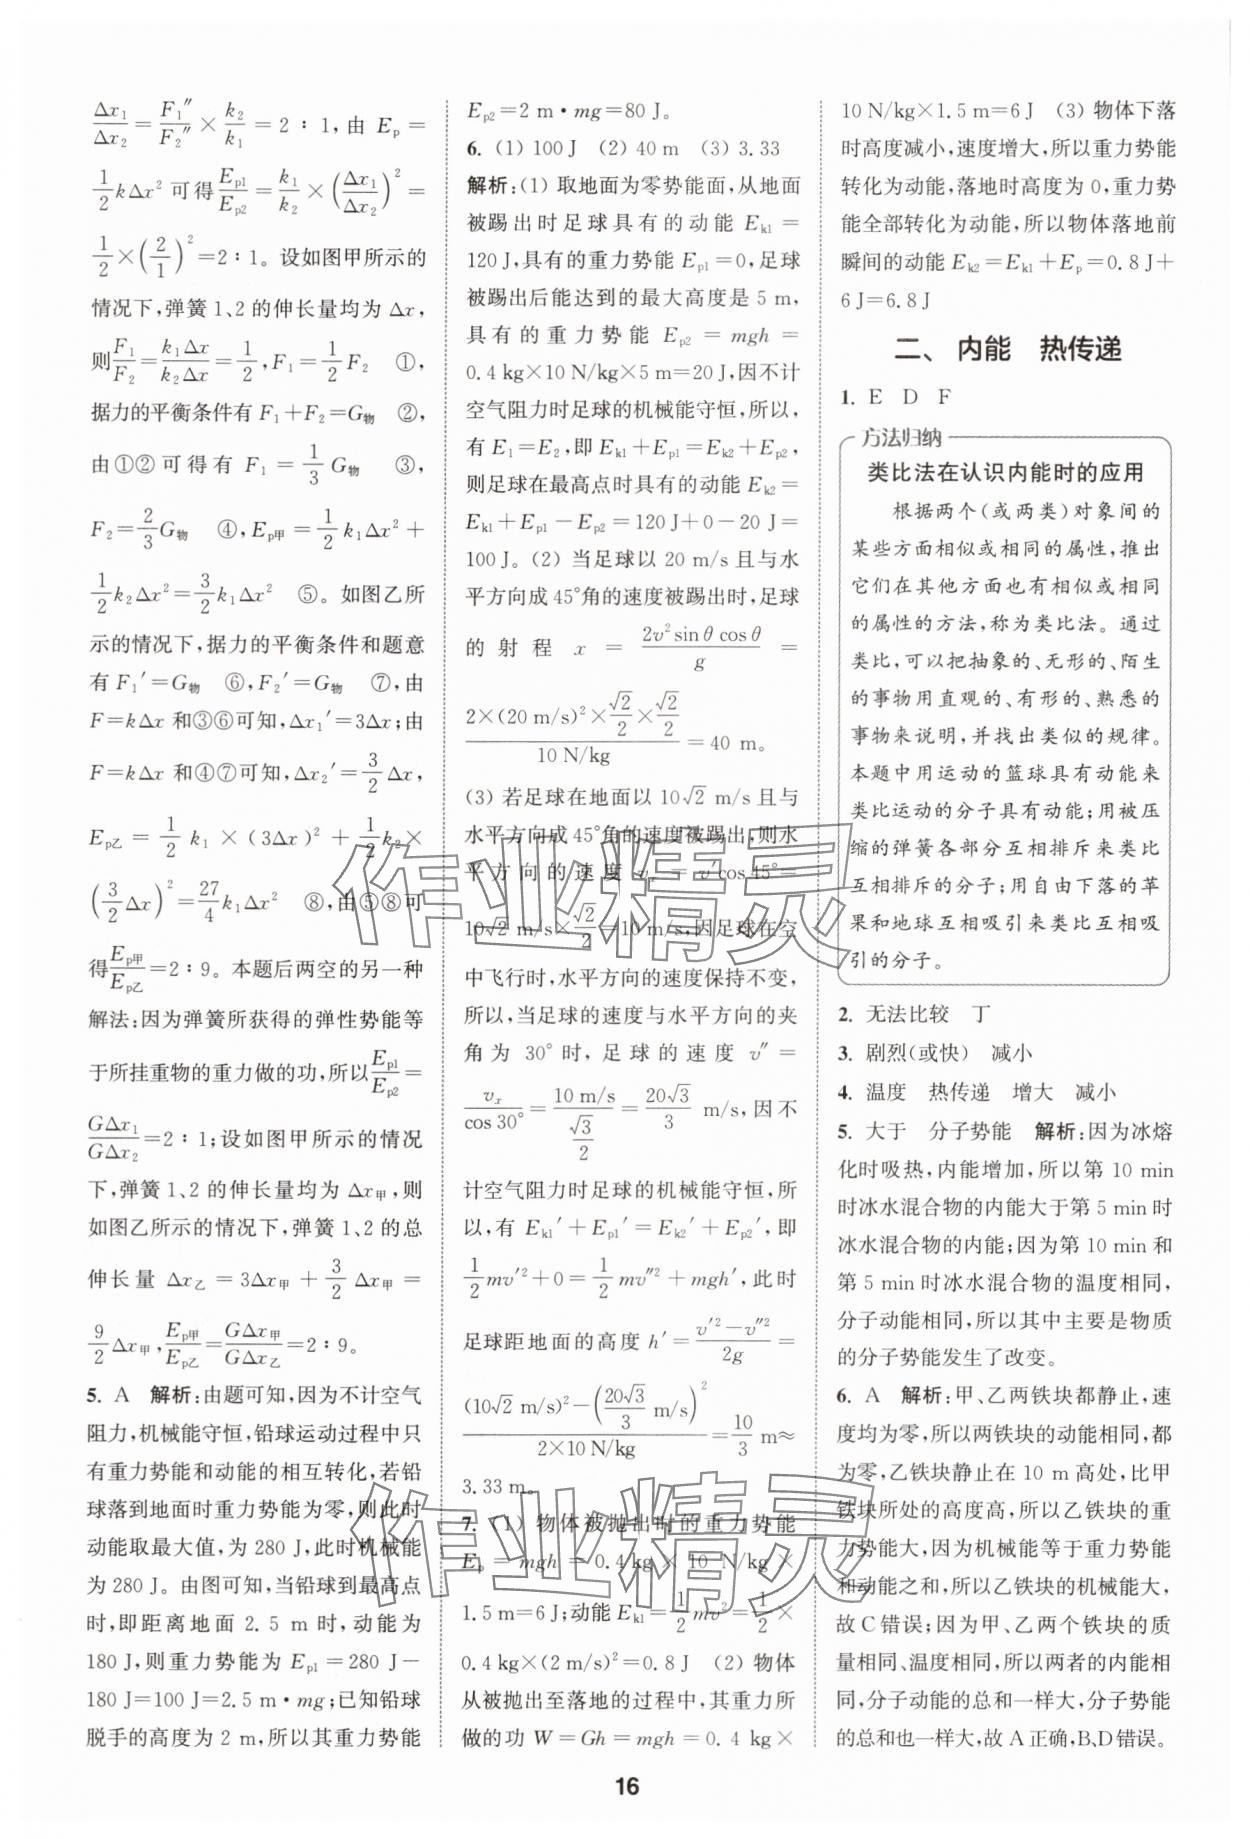 Δx₁/Δx₂=F₁″/F₂″×k₂/k₁=2∶1,由 Eₚ=
1/2kΔx²可得Eₚ₁/Eₚ₂=k₁/k₂×(Δx₁/Δx₂)²=
1/2×(2/1)²=2∶1。设如图甲所示的
情况下,弹簧1、2的伸长量均为Δx,
则F₁/F₂=k₁Δx/k₂Δx=1/2,F₁=1/2F₂ ①,
据力的平衡条件有F₁+F₂=G物 ②,
由①②可得有 F₁=1/3G物 ③,
F₂=2/3G物 ④,Eₚ甲=1/2k₁Δx²+
1/2k₂Δx²=3/2k₁Δx² ⑤。如图乙所
示的情况下,据力的平衡条件和题意
有F₁′=G物 ⑥,F₂′=G物 ⑦,由
F=kΔx和③⑥可知,Δx₁′=3Δx;由
F=kΔx 和④⑦可知,Δx₂′=3/2Δx,
Eₚ乙=1/2k₁×(3Δx)²+1/2k₂×
(3/2Δx)²=27/4k₁Δx² ⑧,由⑤⑧可
得Eₚ甲/Eₚ乙=2∶9。本题后两空的另一种
解法:因为弹簧所获得的弹性势能等
于所挂重物的重力做的功,所以Eₚ₁/Eₚ₂=
GΔx₁/GΔx₂=2∶1;设如图甲所示的情况
下,弹簧1、2的伸长量均为Δx甲,则
如图乙所示的情况下,弹簧1、2的总
伸长量 Δx乙=3Δx甲+3/2Δx甲=
9/2Δx甲,Eₚ甲/Eₚ乙=GΔx甲/GΔx乙=2∶9。
5. A 解析:由题可知,因为不计空气
阻力,机械能守恒,铅球运动过程中只
有重力势能和动能的相互转化,若铅
球落到地面时重力势能为零,则此时
动能取最大值,为280 J,此时机械能
为280 J。由图可知,当铅球到最高点
时,即距离地面2.5 m时,动能为
180 J,则重力势能为Eₚ₁=280 J−
180 J=100 J=2.5 m·mg;已知铅球
脱手的高度为2 m,所以其重力势能
Eₚ₂=2 m·mg=80 J。
6. (1) 100 J (2) 40 m (3) 3.33
解析:(1) 取地面为零势能面,从地面
被踢出时足球具有的动能Eₖ₁=
120 J,具有的重力势能Eₚ₁=0,足球
被踢出后能达到的最大高度是5 m,
具有的重力势能Eₚ₂=mgh=
0.4 kg×10 N/kg×5 m=20 J,因不计
空气阻力时足球的机械能守恒,所以,
有E₁=E₂,即Eₖ₁+Eₚ₁=Eₖ₂+Eₚ₂,
则足球在最高点时具有的动能Eₖ₂=
Eₖ₁+Eₚ₁−Eₚ₂=120 J+0−20 J=
100 J。(2) 当足球以20 m/s且与水
平方向成45°角的速度被踢出时,足球
的射程 x=2v²sinθcosθ/g=
2×(20 m/s)²×√2/2×√2/2/10 N/kg=40 m。
(3) 若足球在地面以10√2 m/s且与
水平方向成45°角的速度被踢出,则水
平方向的速度 vₓ=v′cos45°=
10√2 m/s×√2/2=10 m/s,因足球在空
中飞行时,水平方向的速度保持不变,
所以,当足球的速度与水平方向的夹
角为30°时,足球的速度v″=
vₓ/cos30°=10 m/s/(√3/2)=20√3/3 m/s,因不
计空气阻力时足球的机械能守恒,所
以,有Eₖ₁′+Eₚ₁′=Eₖ₂′+Eₚ₂′,即
1/2mv′²+0=1/2mv″²+mgh′,此时
足球距地面的高度h′=(v′²−v″²)/2g=
((10√2 m/s)²−(20√3/3 m/s)²)/(2×10 N/kg)=10/3 m≈
3.33 m。
7. (1) 物体被抛出时的重力势能
Eₚ=mgh=0.4 kg×10 N/kg×
1.5 m=6 J;动能Eₖ₁=1/2mv²=1/2×
0.4 kg×(2 m/s)²=0.8 J (2) 物体
从被抛出至落地的过程中,其重力所
做的功W=Gh=mgh=0.4 kg×
10 N/kg×1.5 m=6 J (3) 物体下落
时高度减小,速度增大,所以重力势能
转化为动能,落地时高度为0,重力势
能全部转化为动能,所以物体落地前
瞬间的动能Eₖ₂=Eₖ₁+Eₚ=0.8 J+
6 J=6.8 J
二、内能 热传递
1. E D F
方法归纳
类比法在认识内能时的应用
根据两个(或两类)对象间的
某些方面相似或相同的属性,推出
它们在其他方面也有相似或相同
的属性的方法,称为类比法。通过
类比,可以把抽象的、无形的、陌生
的事物用直观的、有形的、熟悉的
事物来说明,并找出类似的规律。
本题中用运动的篮球具有动能来
类比运动的分子具有动能;用被压
缩的弹簧各部分互相排斥来类比
互相排斥的分子;用自由下落的苹
果和地球互相吸引来类比互相吸
引的分子。
2. 无法比较 丁
3. 剧烈(或快) 减小
4. 温度 热传递 增大 减小
5. 大于 分子势能 解析:因为冰熔
化时吸热,内能增加,所以第10 min
时冰水混合物的内能大于第5 min时
冰水混合物的内能;因为第10 min和
第5 min时冰水混合物的温度相同,
分子动能相同,所以其中主要是物质
的分子势能发生了改变。
6. A 解析:甲、乙两铁块都静止,速
度均为零,所以两铁块的动能相同,都
为零,乙铁块静止在10 m高处,比甲
铁块所处的高度高,所以乙铁块的重
力势能大,因为机械能等于重力势能
和动能之和,所以乙铁块的机械能大,
故C错误;因为甲、乙两个铁块的质
量相同、温度相同,所以两者的内能相
同,分子动能的总和一样大,分子势能
的总和也一样大,故A正确,B、D错误。
16
作业精灵
作业精灵